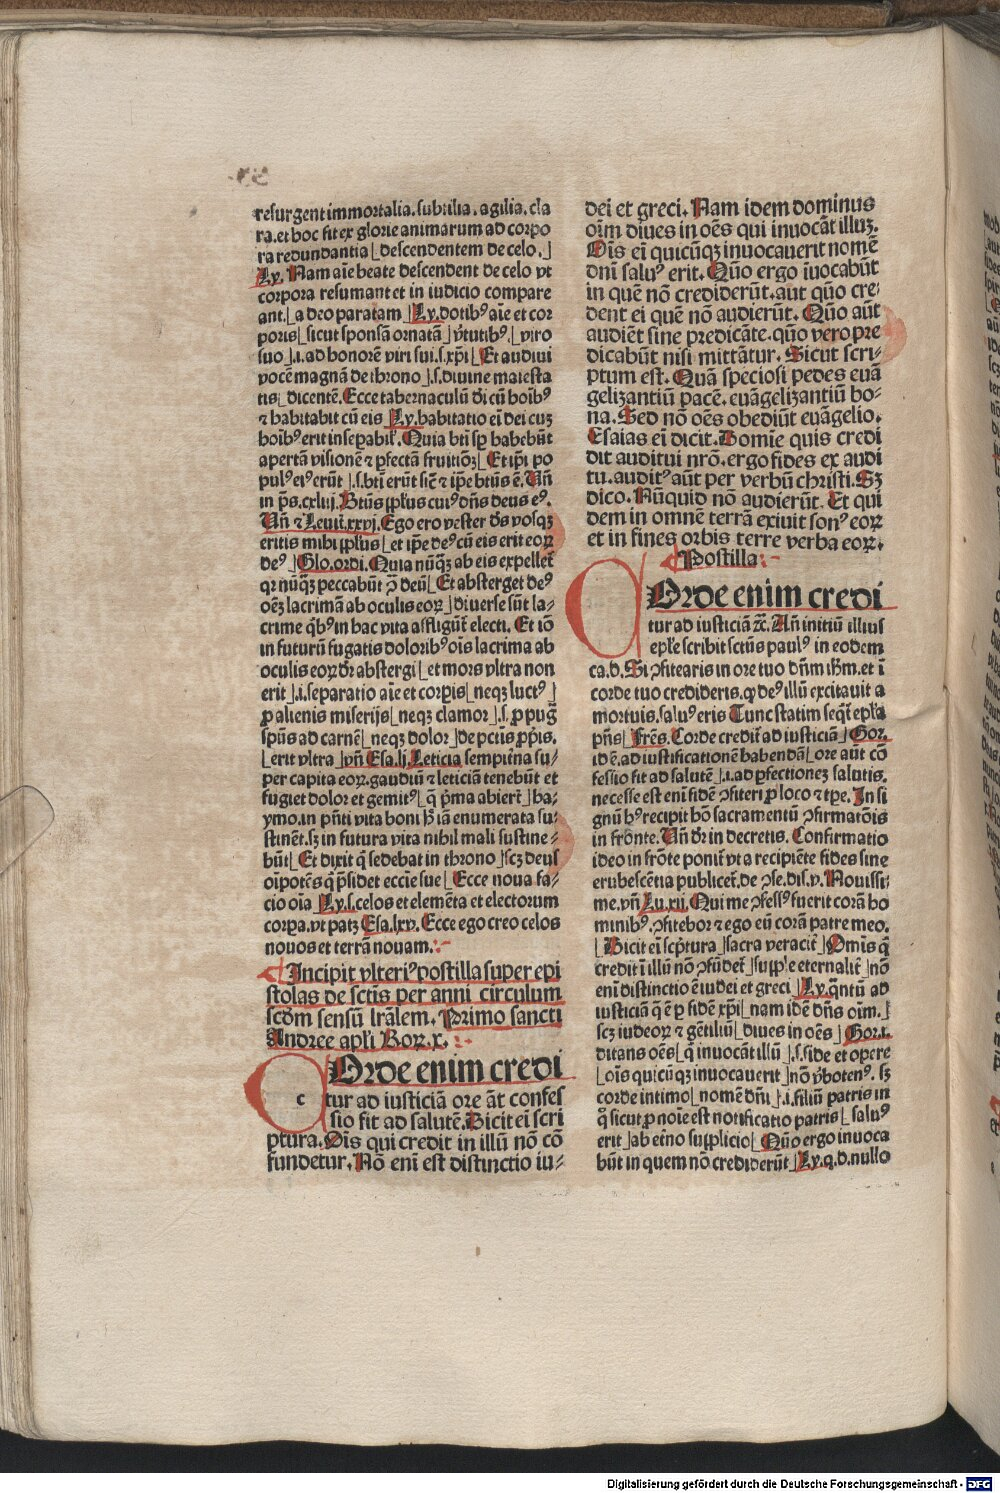 resurgent immortalia. subtilia. agilia. cla
ra. et hoc fit ex glorie animarum ad corpo
ra redundantia ⌊descendentem de celo.⌋
Ly. Nam aīe beate descendent de celo vt
corpora resumant et in iudicio compare
ant. ⌊a deo paratam⌋ Ly. dotibꝰ aīe et cor
poris ⌊sicut sponsā ornatā⌋ v̓tutibꝰ. ⌊viro
suo⌋ .i. ad honorē viri sui. s. xp̄i ⌊Et audiui
vocē magnā de throno⌋ .s. diuine maiesta
tis ⌊dicentē. Ecce tabernaculū dei cū hoībꝰ
⁊ habitabit cū eis ⌊Ly. habitatio eī dei cuꝫ
hoībꝰ erit insepabil̓. Quia bt̄i sp̄ habebūt
apertā visionē ⁊ ꝑfectā fruitiōꝫ ⌊Et ip̄i po
pulꝰ eiꝰ erūt⌋ .s. bt̄i erūt sic̄ ⁊ ip̄e btūs ē. Vn̄
in p̄s. cxliij. Btūs pp̄lus cuiꝰ dn̄s deus eꝰ.
Vn̄ ⁊ Leuit. xxvj. Ego ero vester ds̄ vosqꝫ
eritis mihi pp̄lus ⌊et ip̄e deꝰ cū eis erit eoꝝ
deꝰ⌋ Glo. ordi. Quia nūqꝫ ab eis expellet̄
qr nūqꝫ peccabūt ꝯ̄ deū ⌊Et absterget deꝰ
oēꝫ lacrimā ab oculis eoꝝ⌋ diuerse sūt la-
crime qb̓ꝰ in hac vita affligūt̄ electi. Et iō
in futurū fugatis doloribꝰ oīs lacrima ab
oculis eoꝝ dr̄ abstergi ⌊et mors vltra non
erit⌋ .i. separatio aīe et corꝑis ⌊neqꝫ luctꝰ⌋
ꝓ alienis miserijs ⌊neqꝫ clamor⌋ .s. ꝓ puḡ
spūs ad carnē ⌊neqꝫ dolor⌋ de pctīs ꝓprijs.
⌊erit vltra⌋ vn̄ Esa. lj. Leticia sempit̄na su-
per capita eoꝝ. gaudiū ⁊ leticiā tenebūt et
fugiet dolor et gemitꝰ ⌊q̄ p̓ma abiert̄⌋ ha-
ymo. in pn̄ti vita boni hꝫ iā enumerata su-
stinēt. sꝫ in futura vita nihil mali sustine-
būt ⌊Et dixit q̓ sedebat in throno⌋ scꝫ deus
oīpotēs q̓ p̄sidet eccīe sue ⌊Ecce noua fa-
cio oīa⌋ Ly. s. celos et elemēta et electorum
corpa. vt patꝫ Esa. lxv. Ecce ego creo celos
nouos et terrā nouam.
Incipit vlteriꝰ postilla super epi
stolas de sctīs per anni circulum
scd̄m sensū lr̄alem. Primo sancti
Andree apl̄i Roꝝ. x.
COrde enim credi
tur ad iusticiā ore āt confes
sio fit ad salutē. Dicit eī scri
ptura. Oīs qui credit in illū nō cō
fundetur. Nō enī est distinctio iu-
dei et greci. Nam idem dominus
oīm diues in oēs qui inuocāt illuꝫ.
Oīs eī quicūqꝫ inuocauerit nomē
dn̄i saluꝰ erit. Quō ergo īuocabūt
in quē nō crediderūt. aut quō cre-
dent ei quē nō audierūt. Quō aūt
audiēt sine predicāte. quō vero pre
dicabūt nisi mittātur. Sicut scri-
ptum est. Quā speciosi pedes euā
gelizantiū pacē. euāgelizantiū bo-
na. Sed nō oēs obediūt euāgelio.
Esaias eī dicit. Domīe quis credi
dit auditui nr̄o. ergo fides ex audi
tu. auditꝰ aūt per verbū christi. Sꝫ
dico. Nūquid nō audierūt. Et qui
dem in omnē terrā exiuit sonꝰ eoꝝ
et in fines orbis terre verba eoꝝ.
Postilla
COrde enim credi
tur ad iusticiā ⁊c̄. Vn̄ initiū illius
epl̄e scribit sctūs paulꝰ in eodem
ca. d. Si ꝯfitearis in ore tuo dn̄m ih̄m. et ī
corde tuo credideris. ꝙ deꝰ illū excitauit a
mortuis. saluꝰ eris Tunc statim seqt̄ epl̄a
pn̄s ⌊Fr̄es. Corde credit̄ ad iusticiā⌋ Gor.
id ē. ad iustificationē habendā ⌊ore aūt cō
fessio fit ad salutē⌋ .i. ad ꝑfectioneꝫ salutis.
necesse est enī fidē ꝯfiteri ꝓ loco ⁊ tpe. In si
gnū hꝰ recipit hō sacramentū ꝯfirmatōis
in frōnte. Vn̄ dr̄ in decretis. Confirmatio
ideo in frōte ponit̄ vt a recipiēte fides sine
erubescētia publicet̄. de ꝯse. dis. v. Nouissi-
me. vn̄ Lu. xii. Qui me ꝯfessꝰ fuerit corā ho
minibꝰ. ꝯfitebor ⁊ ego eū corā patre meo.
⌊Dicit eī scp̄tura⌋ sacra veracit̄ ⌊Omīs q̓
credit ī illū nō ꝯfūdet̄⌋ supple eternalit̄ ⌊nō
enī distinctio ē iudei et greci⌋ Ly. q̄ntū ad
iusticiā q̄ ē ꝑ fidē xp̄i ⌊nam idē dn̄s oīm.⌋
scꝫ iudeoꝝ ⁊ gētiliū ⌊diues in oēs⌋ Gor. i.
ditans oēs ⌊q̓ inuocāt illū⌋ .s. fide et opere
⌊oīs quicūqꝫ inuocauerit⌋ nō v̓botenꝰ. sꝫ
corde intimo ⌊nomē dn̄i⌋ .i. filiū patris in
q̊ sicut ꝓ noīe est notificatio patris ⌊saluꝰ
erit⌋ ab et̓no supplicio ⌊Quō ergo inuoca
būt in quem nō crediderūt⌋ Ly. q. d. nullo
Digitalisierung gefördert durch die Deutsche Forschungsgemeinschaft - DFG